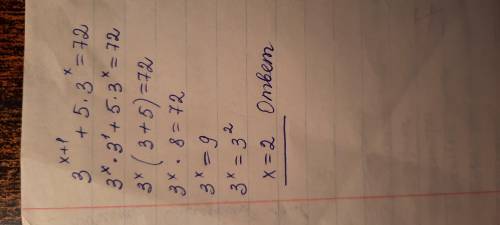 3^{x+1} + 5 · 3^x = 72
3^x · 3^1 + 5 · 3^x = 72
3^x (3 + 5) = 72
3^x · 8 = 72
3^x = 9
3^x = 3^2
x = 2 Ответ